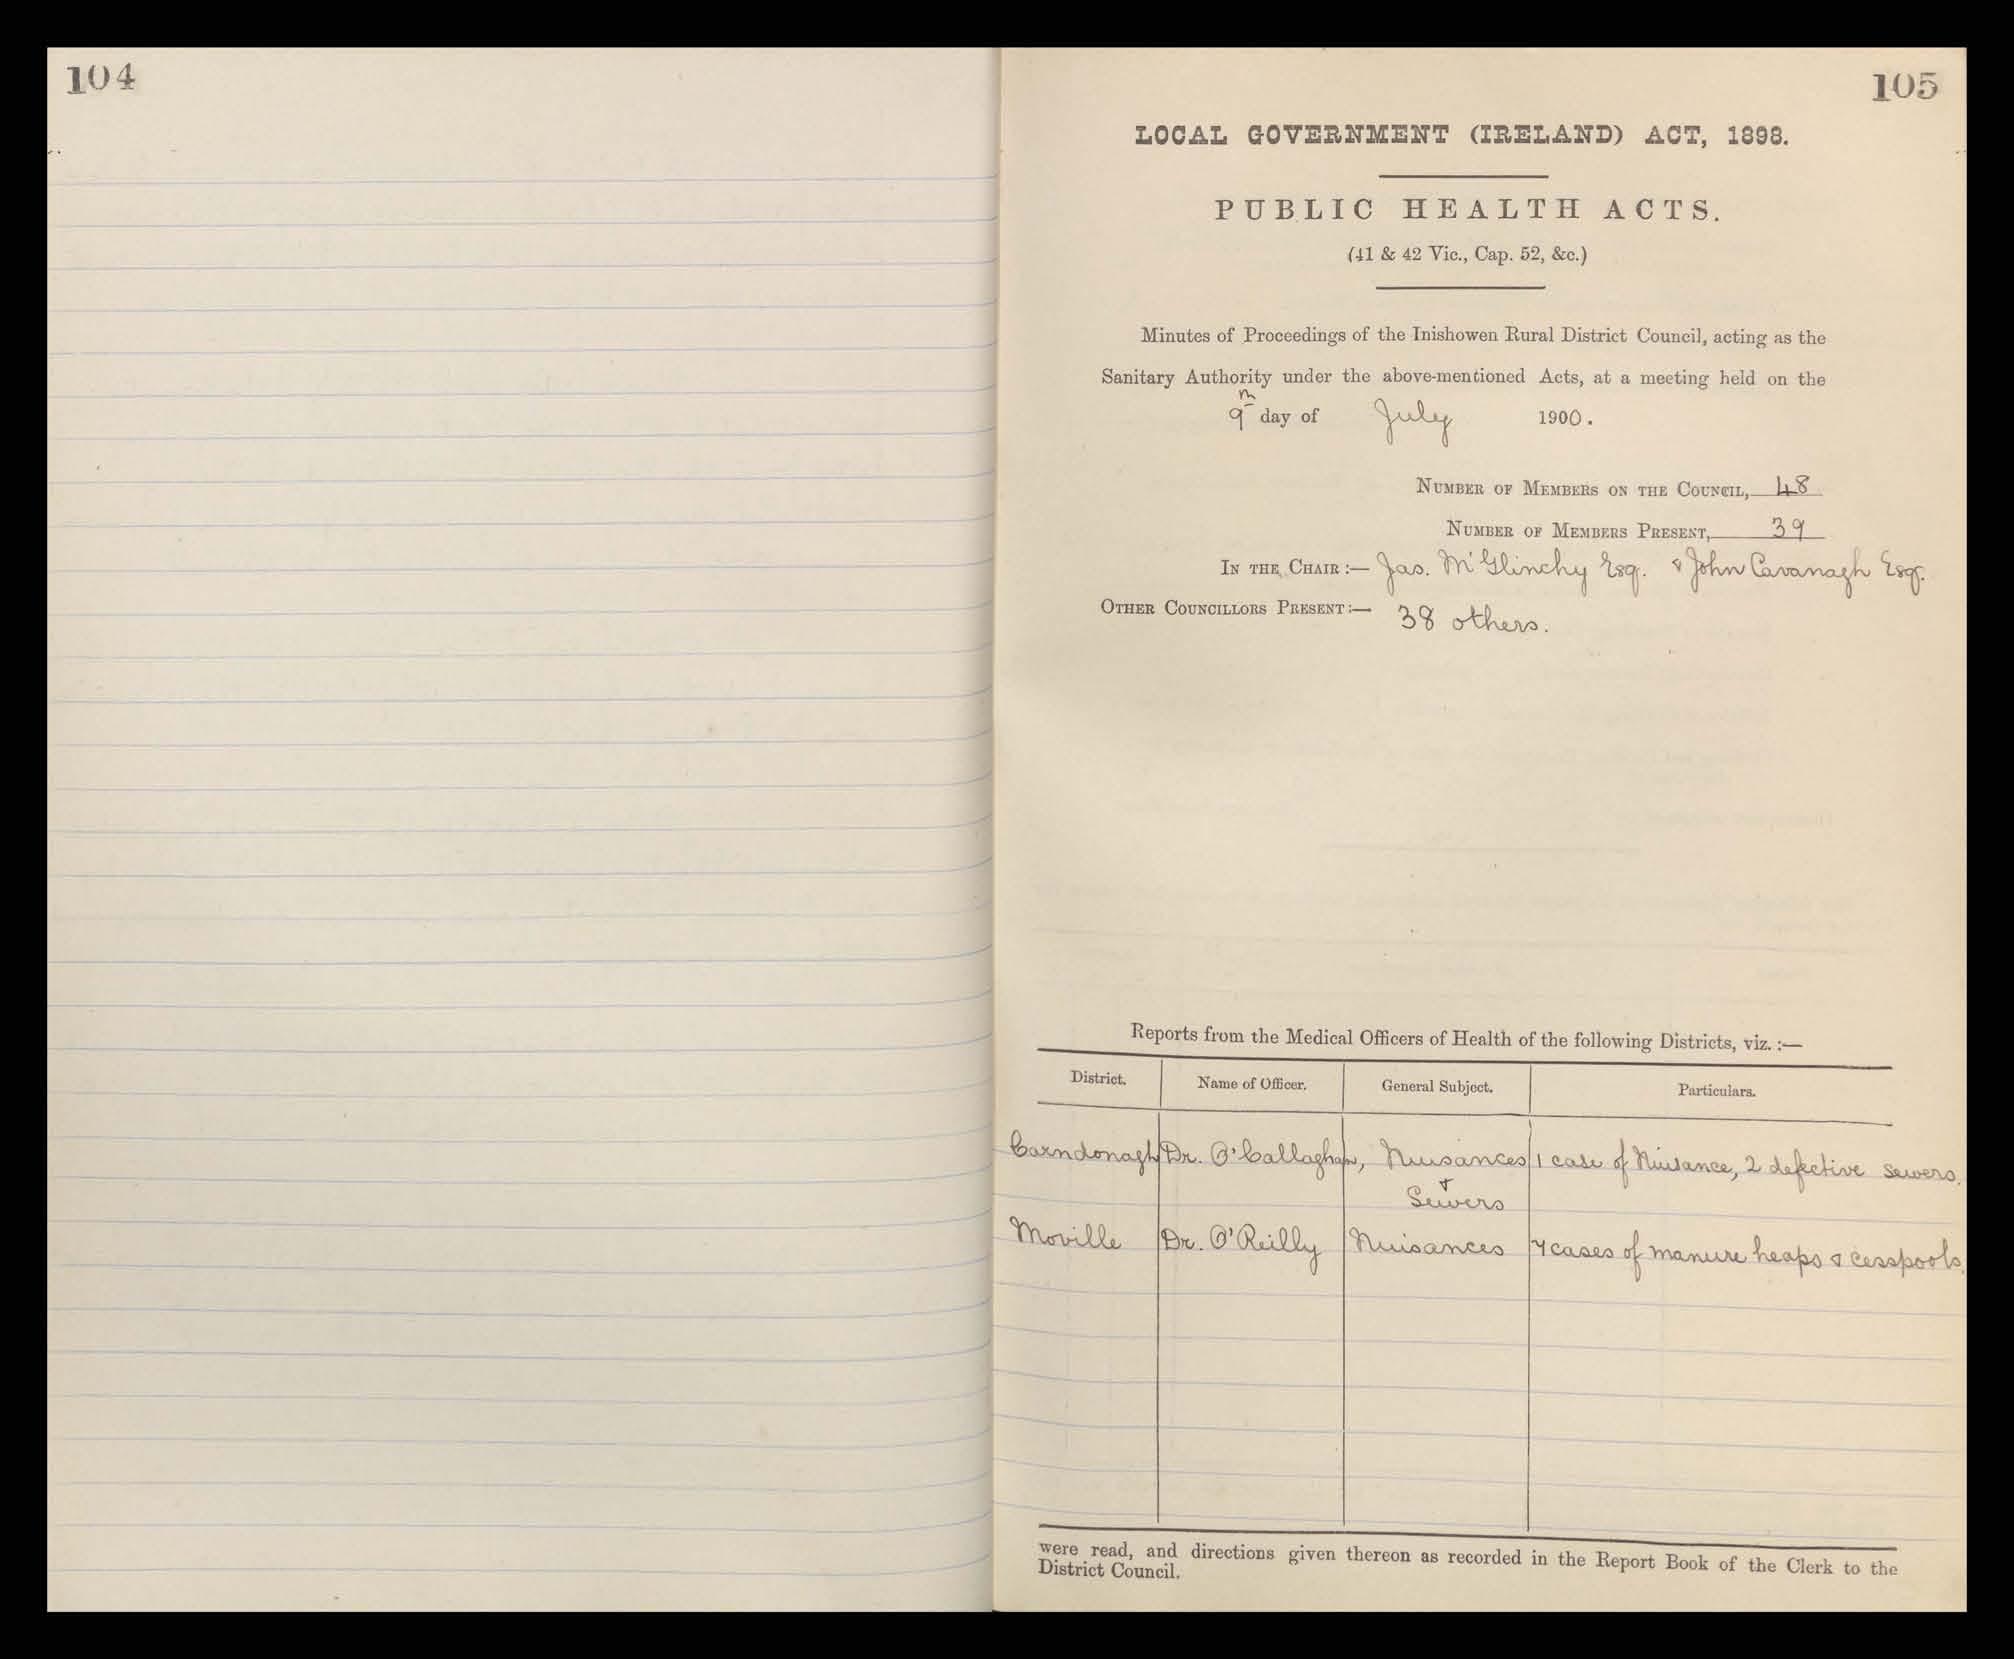 104
105
LOCAL GOVERNMENT (IRELAND) ACT, 1898.
PUBLIC HEALTH ACTS.
(41 & 42 Vic., Cap. 52, &c.)
Minutes of Proceedings of the Inishowen Rural District Council, acting as the
Sanitary Authority under the above-mentioned Acts, at a meeting held on the
9th day of July 1900.
NUMBER OF MEMBERS ON THE COUNCIL, 48
NUMBER OF MEMBERS PRESENT, 39
IN THE CHAIR:— Jas. McGlinchy Esq. & John Cavanagh Esq.
OTHER COUNCILLORS PRESENT:— 38 others.
Reports from the Medical Officers of Health of the following Districts, viz.:—
District. Name of Officer. General Subject. Particulars.
Carndonagh Dr. O'Callaghan, Nuisances 1 case of Nuisance, 2 defective sewers.
& Sewers
Moville Dr. O'Reilly Nuisances 7 cases of manure heaps & cesspools.
were read, and directions given thereon as recorded in the Report Book of the Clerk to the
District Council.